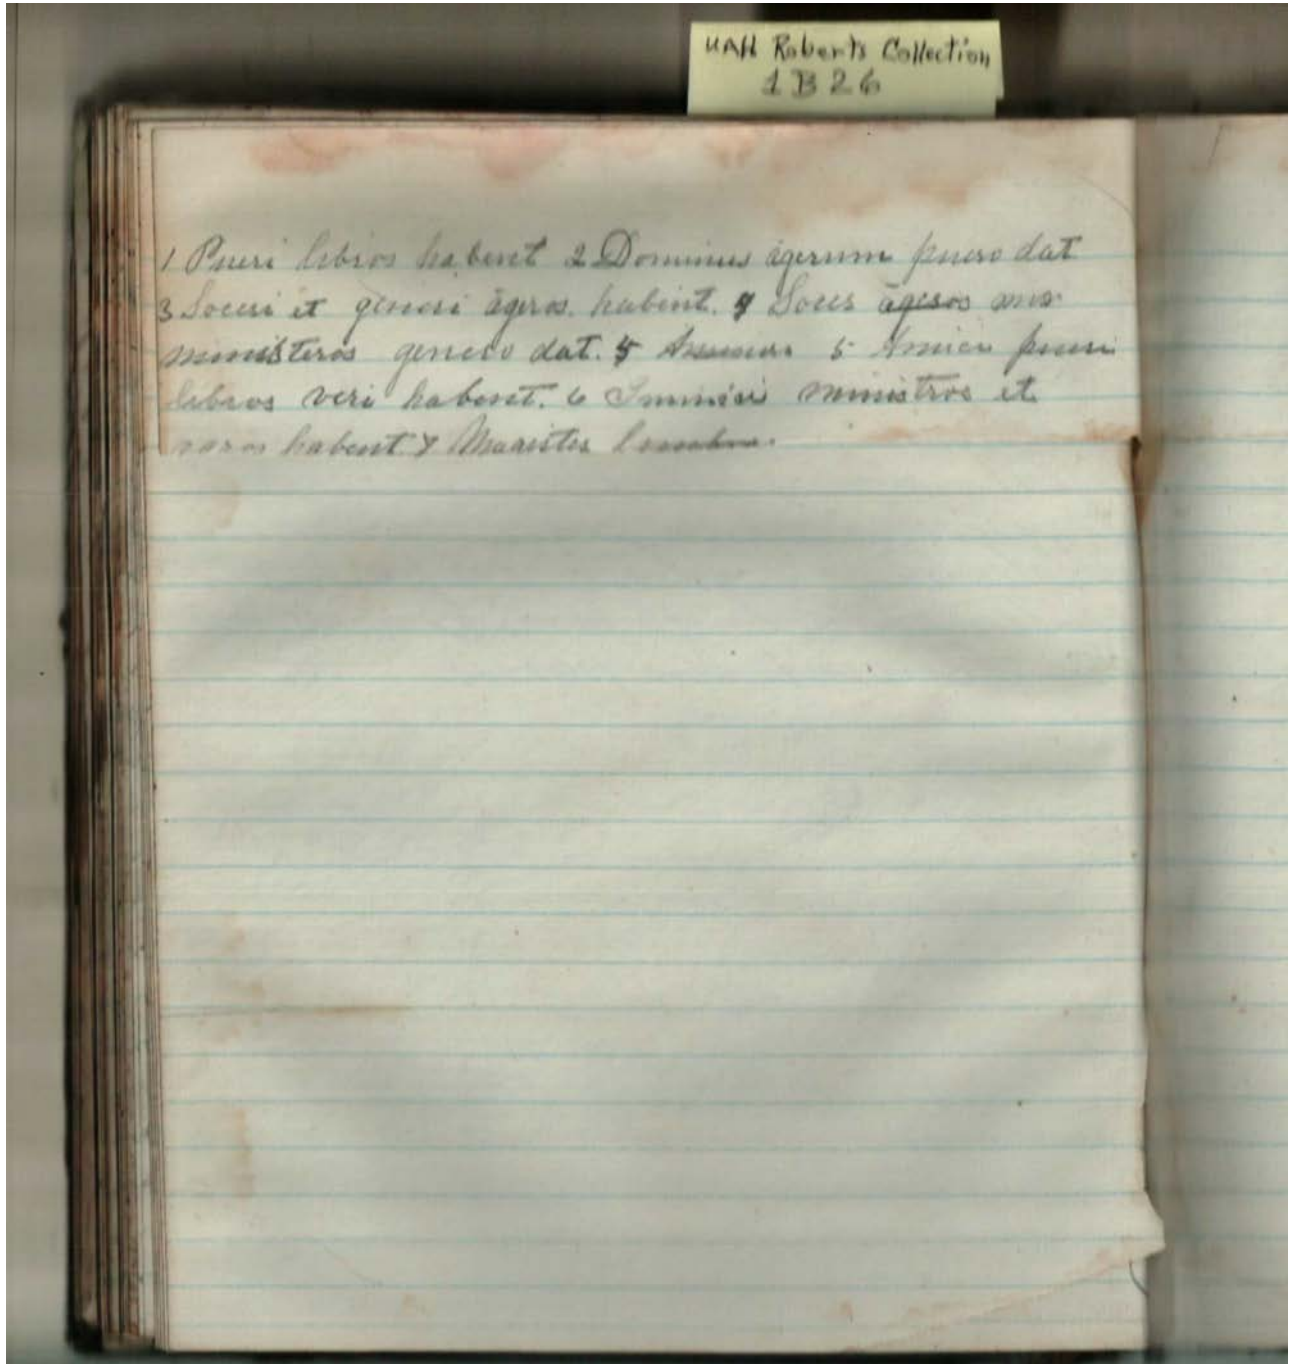 UAH Roberts Collection
1B26
1 Pueri libros habent 2 Dominus āgerum puero dat
3 Soceri et generi āgros. habent. 4 Socer
ministeros genero dat. 5 5 Amici pueri
libros veri habent. 6 ministros et
habent 7 Magister